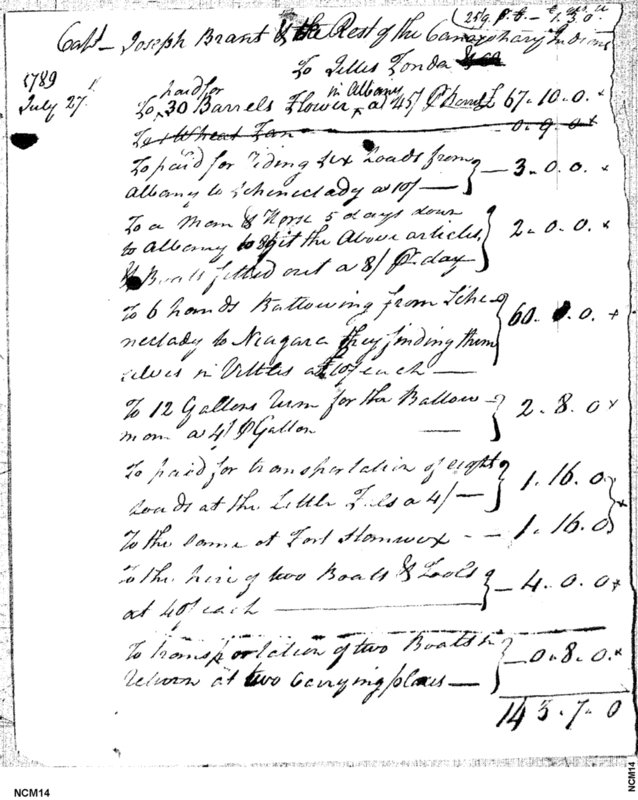 Capt Joseph Brant & the Rest of the Canajohary Indians
To Jelles Fonda
1789
July 27
To paid for 30 Barrels Flower in Albany a 45/ P Barrel £ 67.10.0 x
To 1 Wheat Fan 0.9.0 x
To paid for Riding Six Loads from
Albany to Schenectady a 10/ — 3.0.0 x
To a Man & Horse 5 days down
to Albany to git the Above articles
& Boats fitted out a 8/ Pr day 2.0.0 x
To 6 hands Battowing from Sche-
nectady to Niagara they finding them
selves in Vittles at each — 60. 0.0. +
To 12 Gallons Rum for the Battow-
men a 4/ P Gallon — 2.8.0 x
To paid for transportation of eight
Loads at the Little Fals a 4/ — 1.16.0
To the same at Fort Stanwix - - 1.16.0 x
To the hire of two Boats & Tools
at 40/ each — 4.0.0 x
To transportation of two Boats in
Return at two Carrying places — 0.8.0 x
143.7.0
NCM14
NCM14